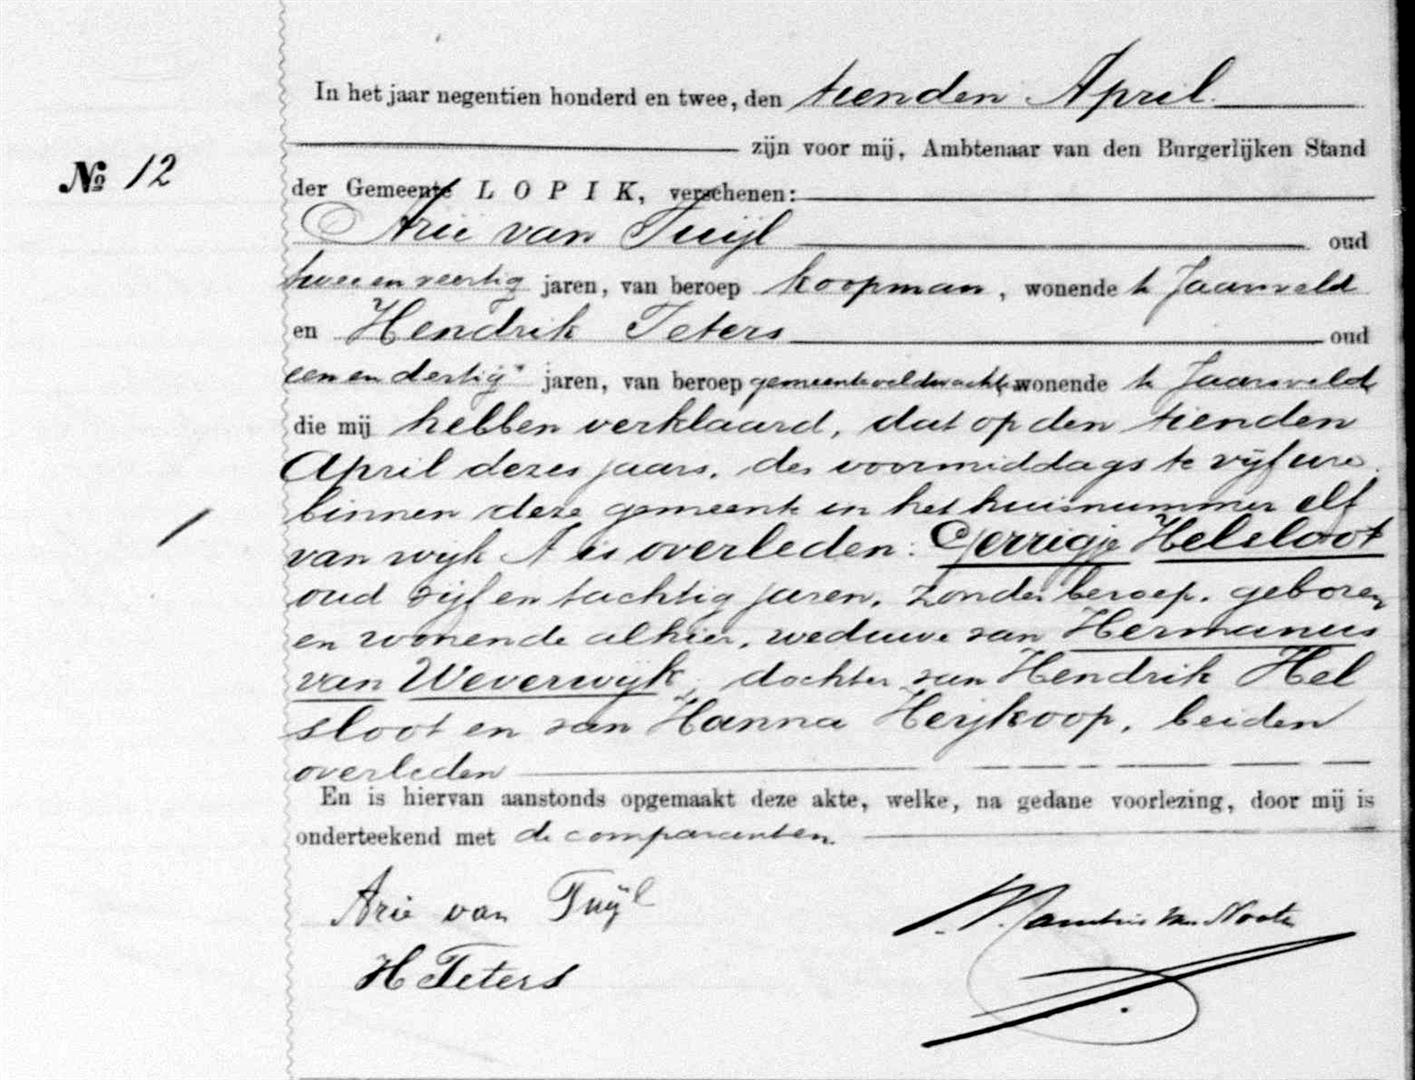 In het jaar negentien honderd en twee, den tienden April
zijn voor mij, Ambtenaar van den Burgerlijken Stand
No 12
der Gemeente LOPIK, verschenen:
Arie van Tuijl oud
twee en veertig jaren, van beroep koopman, wonende te Jaarsveld
en Hendrik Teters oud
een en dertig jaren, van beroep gemeenteveldwachter wonende te Jaarsveld
die mij hebben verklaard, dat op den tienden
April dezes jaars, des voormiddags te vijf ure
binnen deze gemeente in het huisnummer elf
van wijk A is overleden: Gerrigje Helsloot
oud vijf en tachtig jaren, zonder beroep, geboren
en wonende alhier, weduwe van Hermanus
van Weverwijk, dochter van Hendrik Hel
sloot en van Hanna Heijkoop, beiden
overleden
En is hiervan aanstonds opgemaakt deze akte, welke, na gedane voorlezing, door mij is
onderteekend met de comparanten.
Arie van Tuijl
H Teters